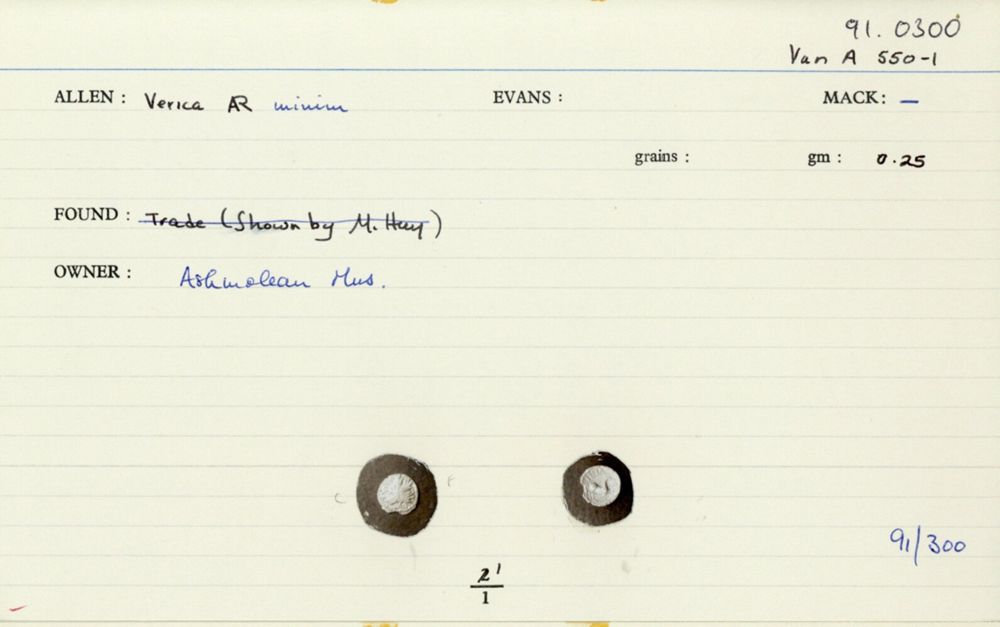 91. 0300
Van A 550-1
ALLEN : Verica AR minim EVANS : MACK: —
grains : gm : 0.25
FOUND : Trade (Shown by M. Huy)
OWNER : Ashmolean Mus.
91/300
2'
1